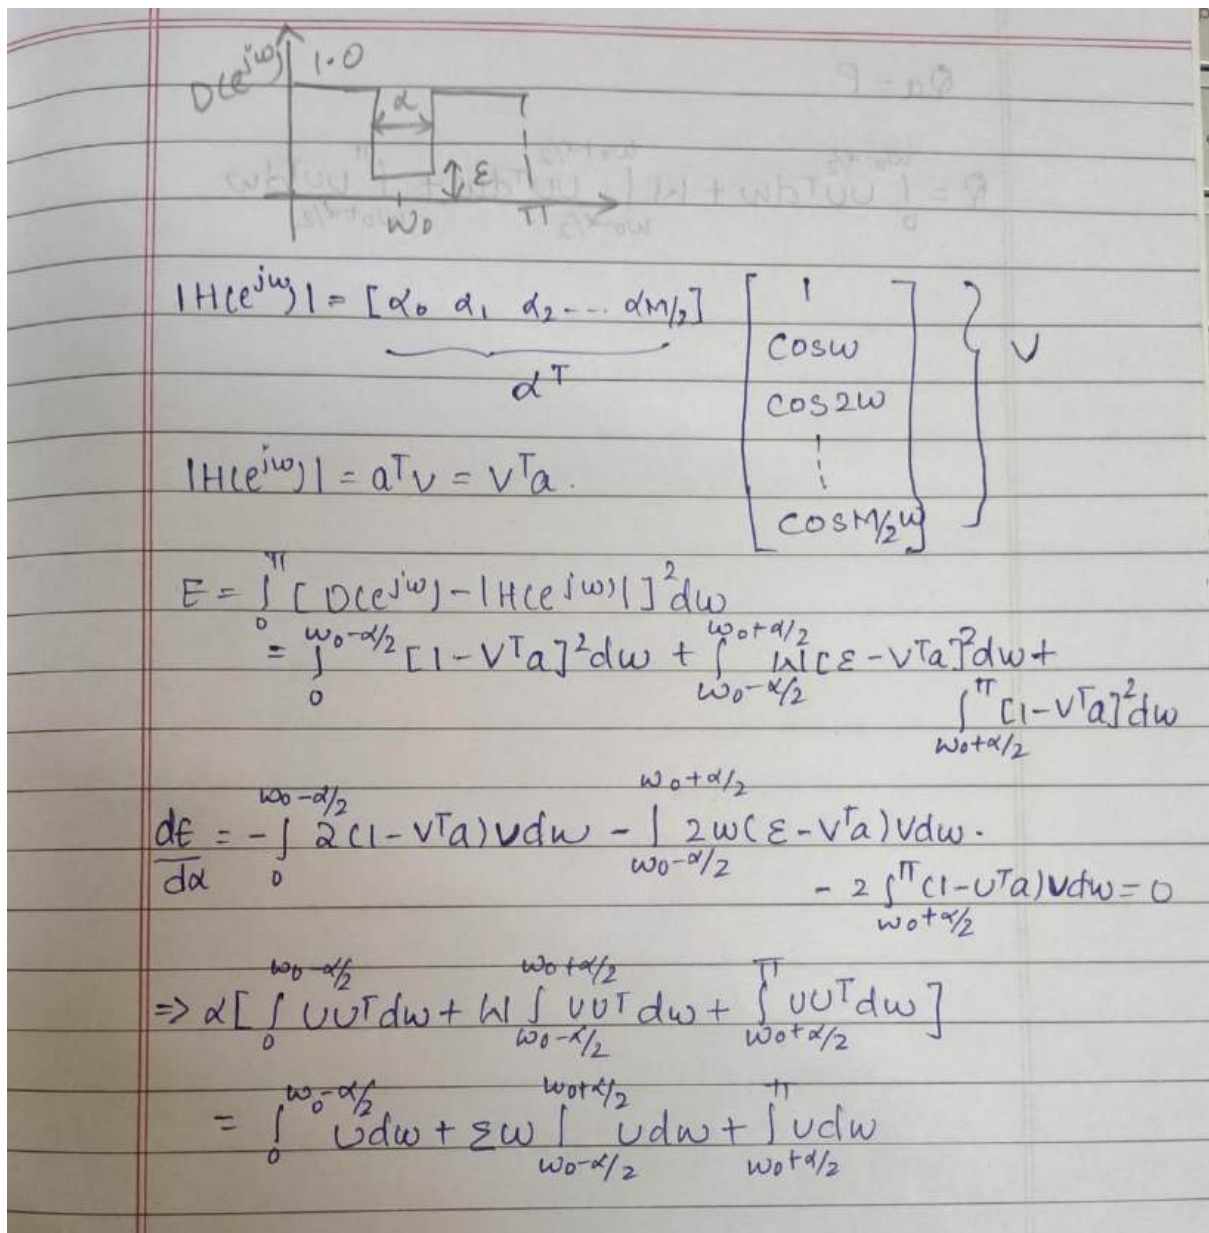 D(e^{jω}) 1.0
α
ε
ω₀ π
|H(e^{jω})| = [α₀ α₁ α₂ --- α_{M/2}] [1
cosω
cos2ω
⋮
cosM/2ω] } V
α^T
|H(e^{jω})| = a^T v = v^T a.
E = ∫_0^π [D(e^{jω}) - |H(e^{jω})|]² dω
= ∫_0^{ω₀-α/2} [1-V^T a]² dω + ∫_{ω₀-α/2}^{ω₀+α/2} W[ε-V^T a]² dω +
∫_{ω₀+α/2}^π [1-V^T a]² dω
dE/dα = -∫_0^{ω₀-α/2} 2(1-V^T a) v dω - ∫_{ω₀-α/2}^{ω₀+α/2} 2w(ε-V^T a) v dω.
- 2∫_{ω₀+α/2}^π (1-υ^T a) v dω = 0
=> α[∫_0^{ω₀-α/2} υυ^T dω + W∫_{ω₀-α/2}^{ω₀+α/2} υυ^T dω + ∫_{ω₀+α/2}^π υυ^T dω]
= ∫_0^{ω₀-α/2} υdω + εω∫_{ω₀-α/2}^{ω₀+α/2} υdω + ∫_{ω₀+α/2}^π υdω